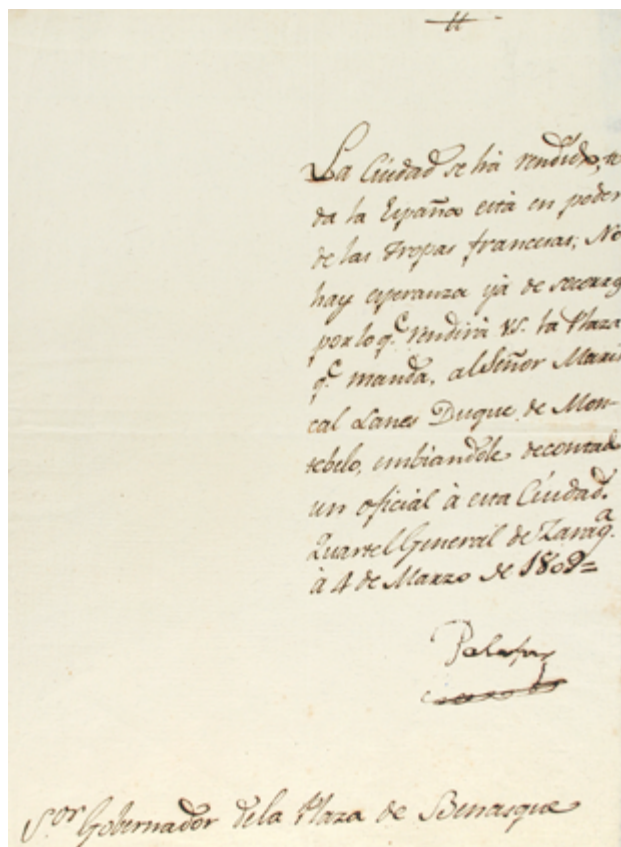 La Ciudad se há rendido, to
da la España está en poder
de las tropas francesas; No
hay esperanza yá de socorro
por lo q.e rendirá V.S. la Plaza
q.e manda, al Señor Maris
cal Lanes Duque de Mon-
tebelo, embiandole decontad
un oficial à esta Ciudad.
Quartel General de Zarag.a
à 4 de Marzo de 1809=
Palafox
S.or Gobernador dela Plaza de Benasque